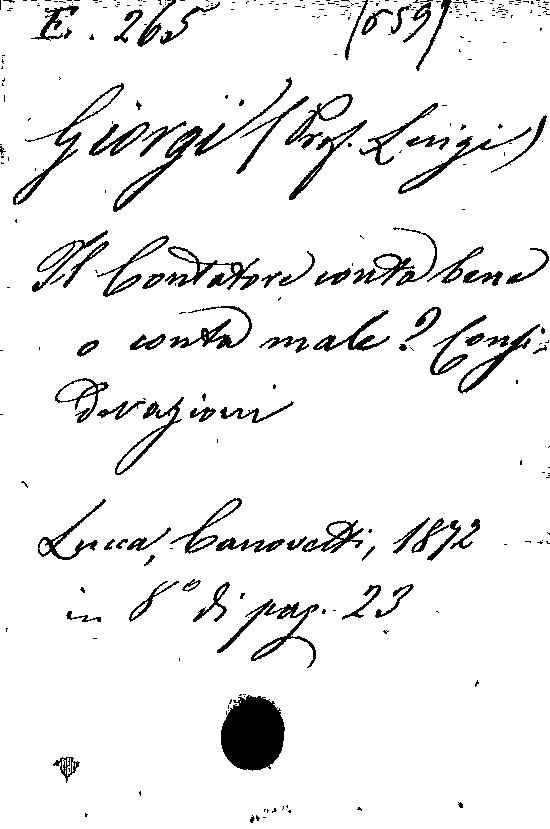 E. 265 (659)
Giorgi (Prof. Luigi)
Il Contatore conta bene
o conta male? Consi-
derazioni
Lucca, Canovetti, 1872
in 8° di pag. 23